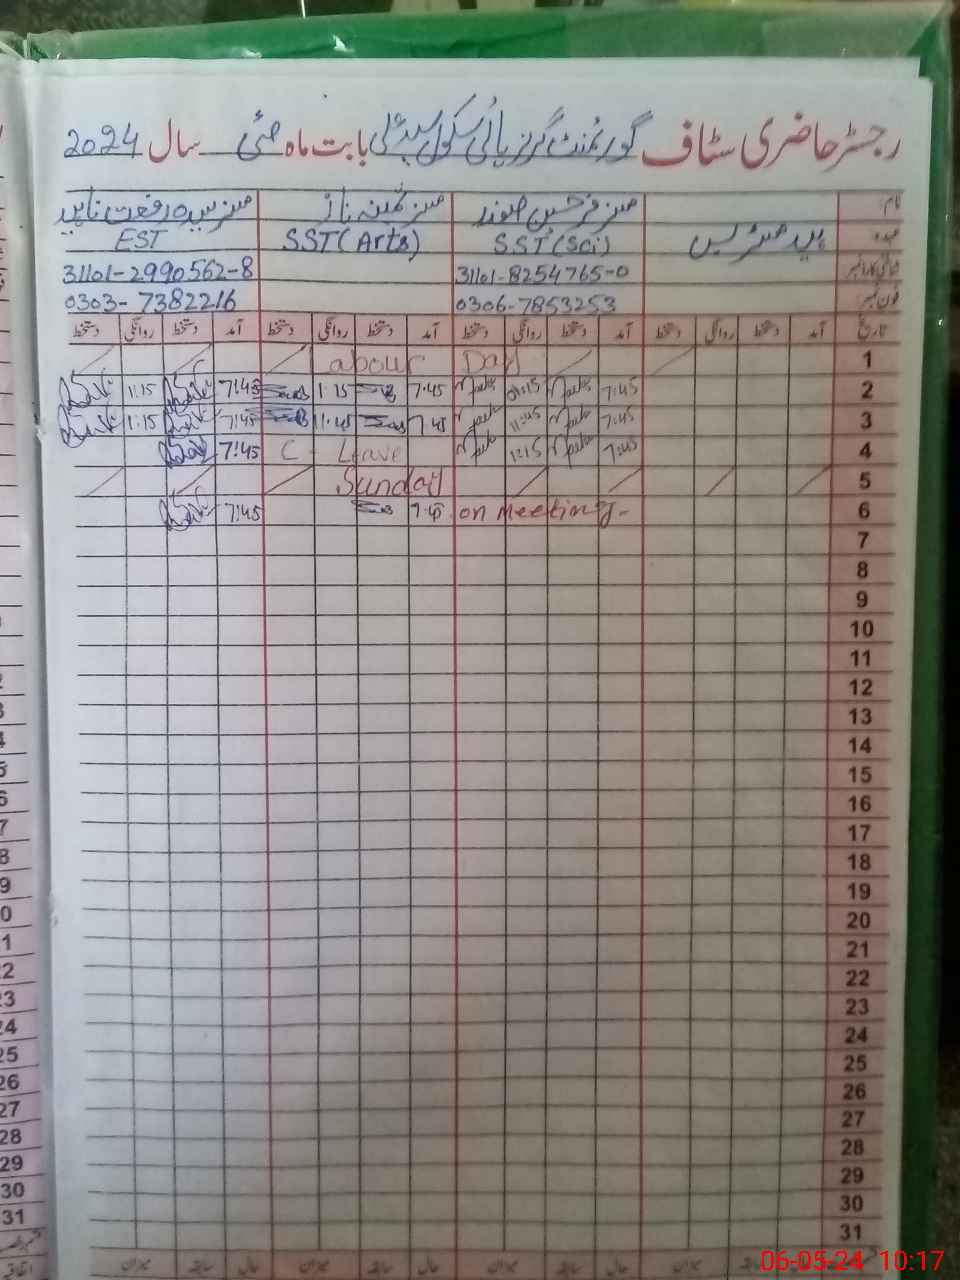 رجسٹر حاضری سٹاف گورنمنٹ گرلز ہائی سکول بابت ماہ مئی سال 2024
نام: مسز مسز ثمینہ ناز مسز سیدہ رفعت
عہدہ ہیڈ مسٹریس SST (Sci) SST (Arts) EST
شناختی کارڈ نمبر 31101-8254765-0 31101-2990562-8
فون نمبر: 0306-7853253 0303-7382216
تاریخ آمد دستخط روانگی دستخط آمد دستخط روانگی دستخط آمد دستخط روانگی دستخط آمد دستخط روانگی دستخط
1 Labour Day
2 7:45 01:15 7:45 1:15 7:45 1:15
3 7:45 11:45 7:45 11:45 7:45 1:15
4 7:45 1:15 C - Leave 7:45
5 Sunday
6 on Meeting- 7:45 7:45
7
8
9
10
11
12
13
14
15
16
17
18
19
20
21
22
23
24
25
26
27
28
29
30
31
حال سابقہ میزان حال سابقہ میزان حال سابقہ میزان
06-05-24 10:17